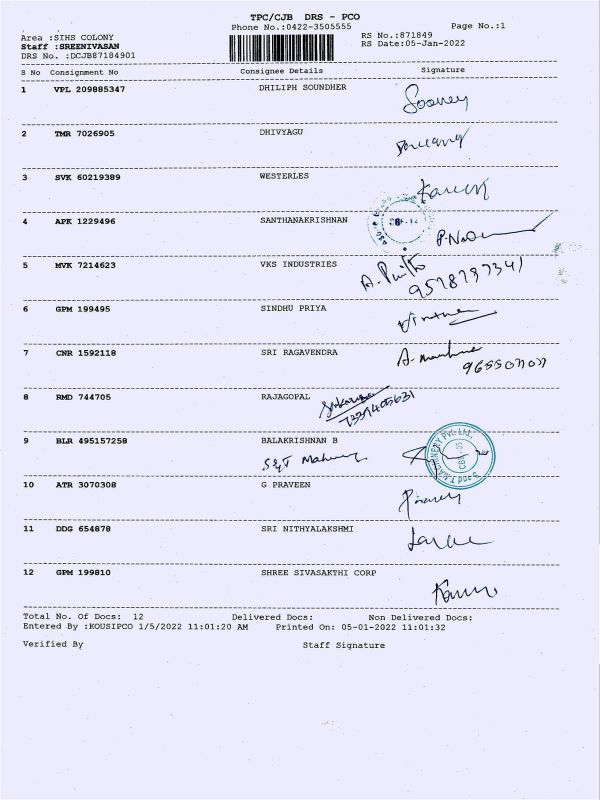 TPC/CJB DRS - PCO
Phone No.:0422-3505555
Page No.:1
Area :SIHS COLONY
RS No.:871849
Staff :SREENIVASAN
RS Date:05-Jan-2022
DRS No. :DCJB87184901
S No Consignment No Consignee Details Signature
1 VPL 209885347 DHILIPH SOUNDHER
2 TMR 7026905 DHIVYAGU
3 SVK 60219389 WESTERLES
4 APK 1229496 SANTHANAKRISHNAN
5 MVK 7214623 VKS INDUSTRIES
6 GPM 199495 SINDHU PRIYA
7 CNR 1592118 SRI RAGAVENDRA
8 RMD 744705 RAJAGOPAL
9 BLR 495157258 BALAKRISHNAN B
10 ATR 3070308 G PRAVEEN
11 DDG 654878 SRI NITHYALAKSHMI
12 GPM 199810 SHREE SIVASAKTHI CORP
Total No. Of Docs: 12 Delivered Docs: Non Delivered Docs:
Entered By :KOUSIPCO 1/5/2022 11:01:20 AM Printed On: 05-01-2022 11:01:32
Verified By Staff Signature